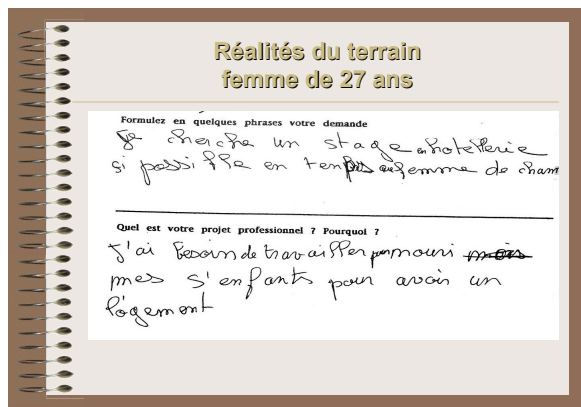 Réalités du terrain
femme de 27 ans
Formulez en quelques phrases votre demande
Je cherche un stage en hotellerie
si possible en temps que femme de cham
Quel est votre projet professionnel ? Pourquoi ?
J'ai besoin de travailler pour nouri mois
mes s'enfants pour avoir un
logement